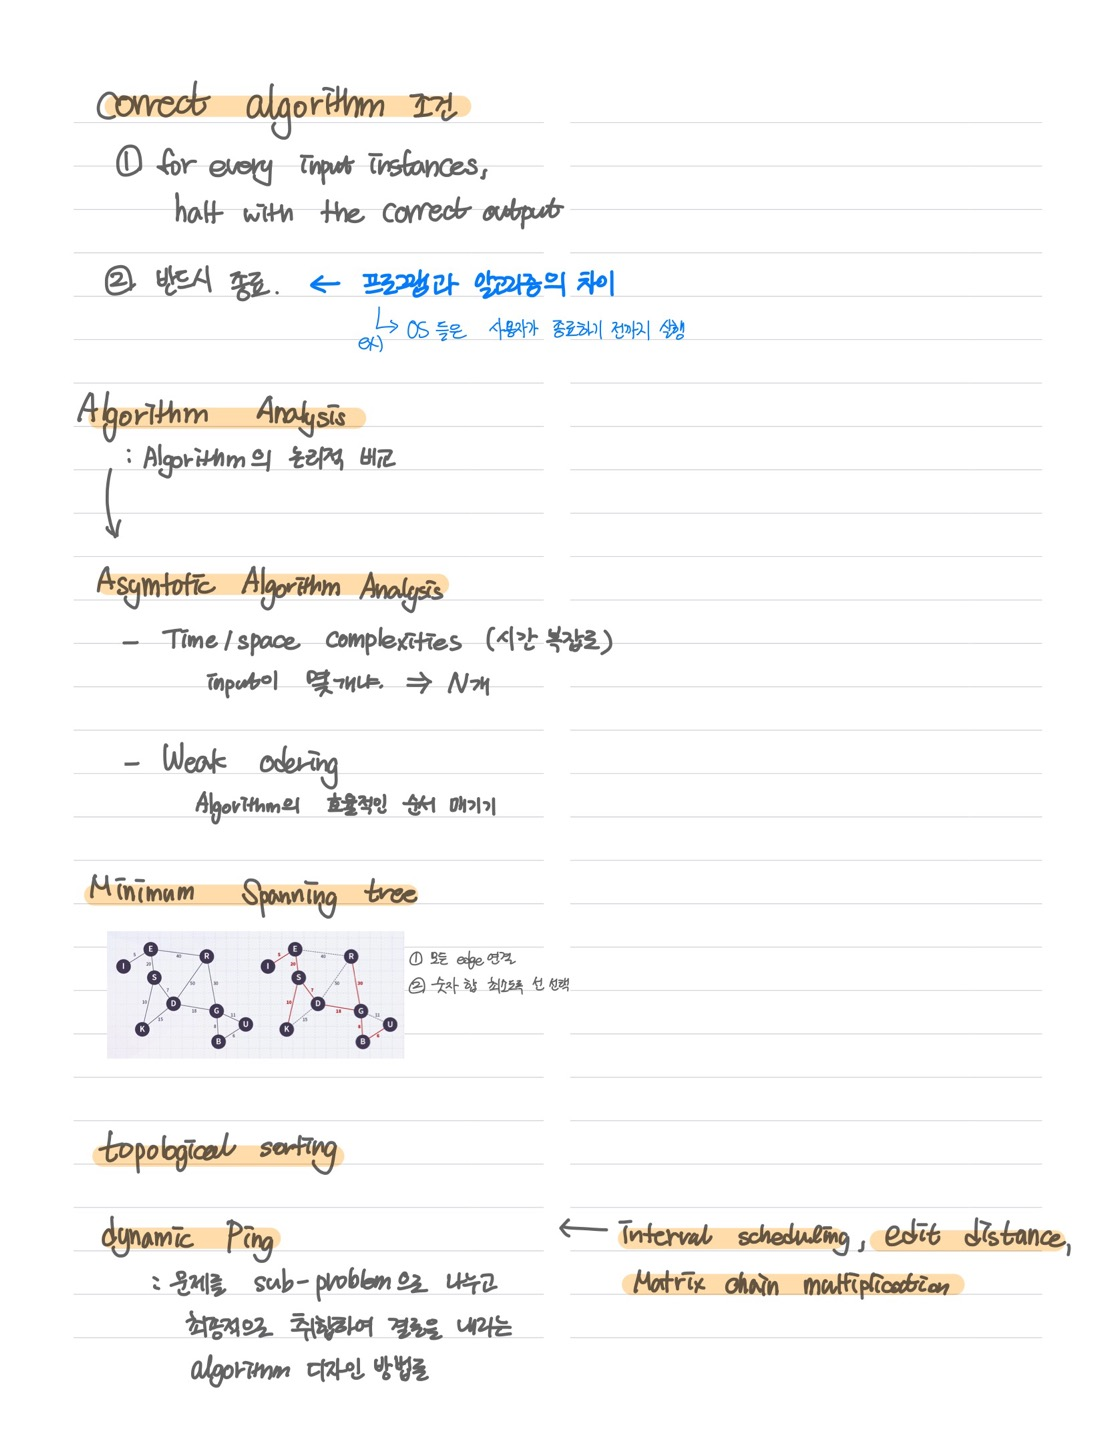 correct algorithm 조건
① for every input instances,
halt with the correct output
② 반드시 종료. ← 프로그램과 알고리즘의 차이
ex) OS 들은 사용자가 종료하기 전까지 실행
Algorithm Analysis
: Algorithm의 논리적 비교
Asymtotic Algorithm Analysis
- Time/space complexities (시간 복잡로)
input이 몇개냐. ⇒ N개
- Weak odering
Algorithm의 효율적인 순서 매기기
Minimum Spanning tree
① 모든 edge 연결
② 숫자 합 최소도록 선 선택
I E R S D K G U B
I E R S D K G U B
topological sorting
dynamic Ping ← interval scheduling, edit distance,
Matrix chain multiplication
: 문제를 sub-problem으로 나누고
최종적으로 취합하여 결론을 내리는
algorithm 디자인 방법론